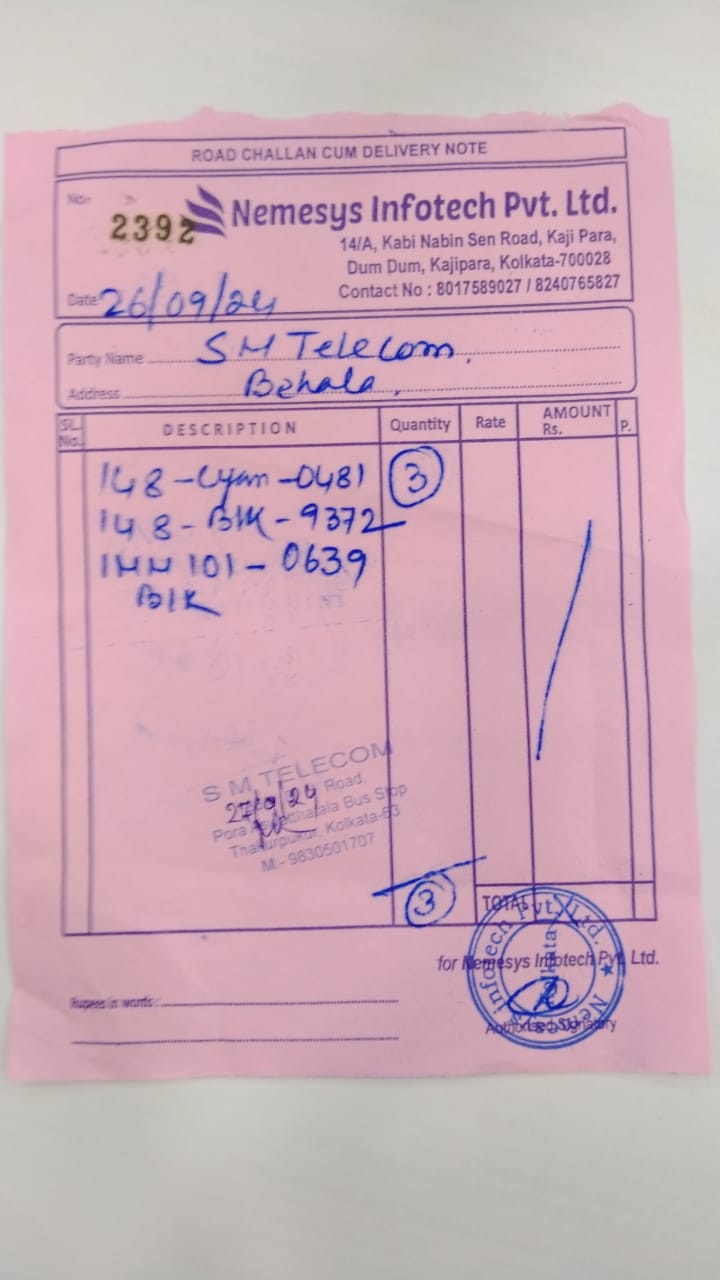 ROAD CHALLAN CUM DELIVERY NOTE
No- 2392
Nemesys Infotech Pvt. Ltd.
14/A, Kabi Nabin Sen Road, Kaji Para,
Dum Dum, Kajipara, Kolkata-700028
Contact No : 8017589027 / 8240765827
Date 26/09/24
Party Name SM Telecom,
Address Behala,
SL. No. DESCRIPTION Quantity Rate AMOUNT Rs. P.
148-Cyan-0481 3
148-Blk-9372
101-0639
Blk
S M TELECOM
27/9/24 Road.
Pora Bus Stop
Thakurpukur, Kolkata-63
M:- 9830501707
3 TOTAL
for Nemesys Infotech Pvt. Ltd.
Nemesys Infotech Pvt. Ltd. Kolkata
Rupees in words :
Authorised Signatory